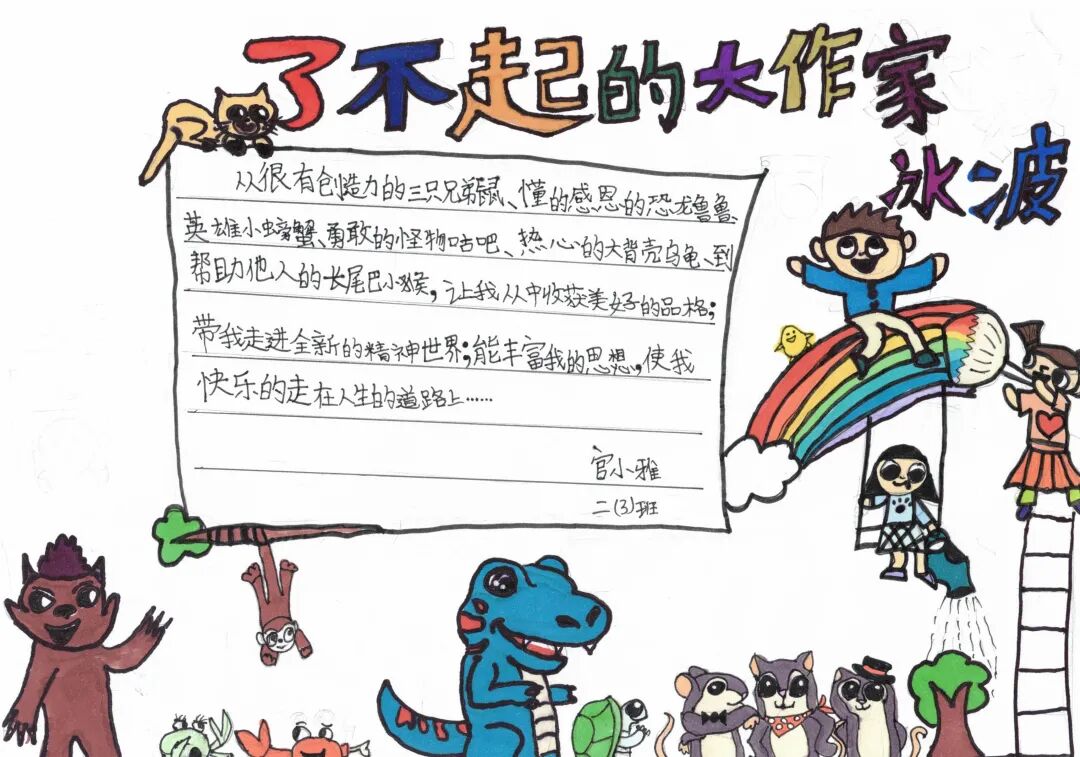 了不起的大作家
冰波
从很有创造力的三只兄弟鼠、懂的感恩的恐龙鲁鲁
英雄小螃蟹、勇敢的怪物咕吧、热心的大背壳乌龟、到
帮助他人的长尾巴小猴，让我从中收获美好的品格；
带我走进全新的精神世界；能丰富我的思想，使我
快乐的走在人生的道路上……
官小雅
二(3)班